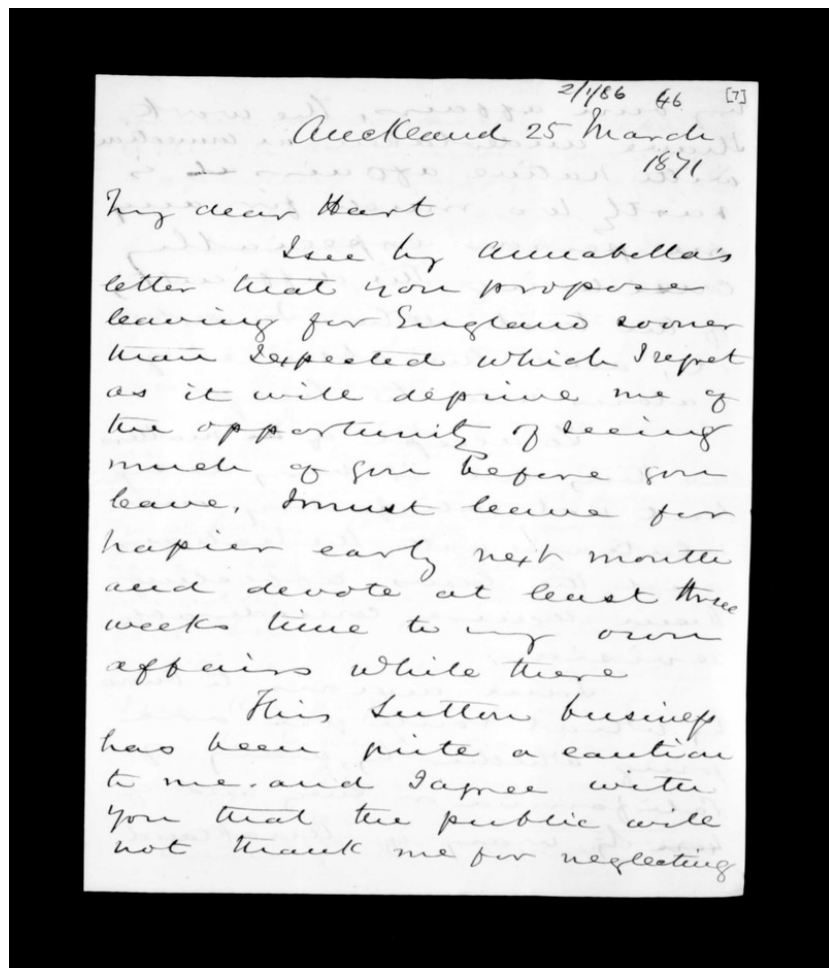 2/1/86 46 [7]
Auckland 25 March
1871
My dear Hart
I see by Annabella's
letter that you propose
leaving for England sooner
than I expected which I regret
as it will deprive me of
the opportunity of seeing
much of you before you
leave, I must leave for
Napier early next month
and devote at least three
weeks time to my own
affairs while there
This Sutton business
has been quite a caution
to me and I agree with
you that the public will
not thank me for neglecting